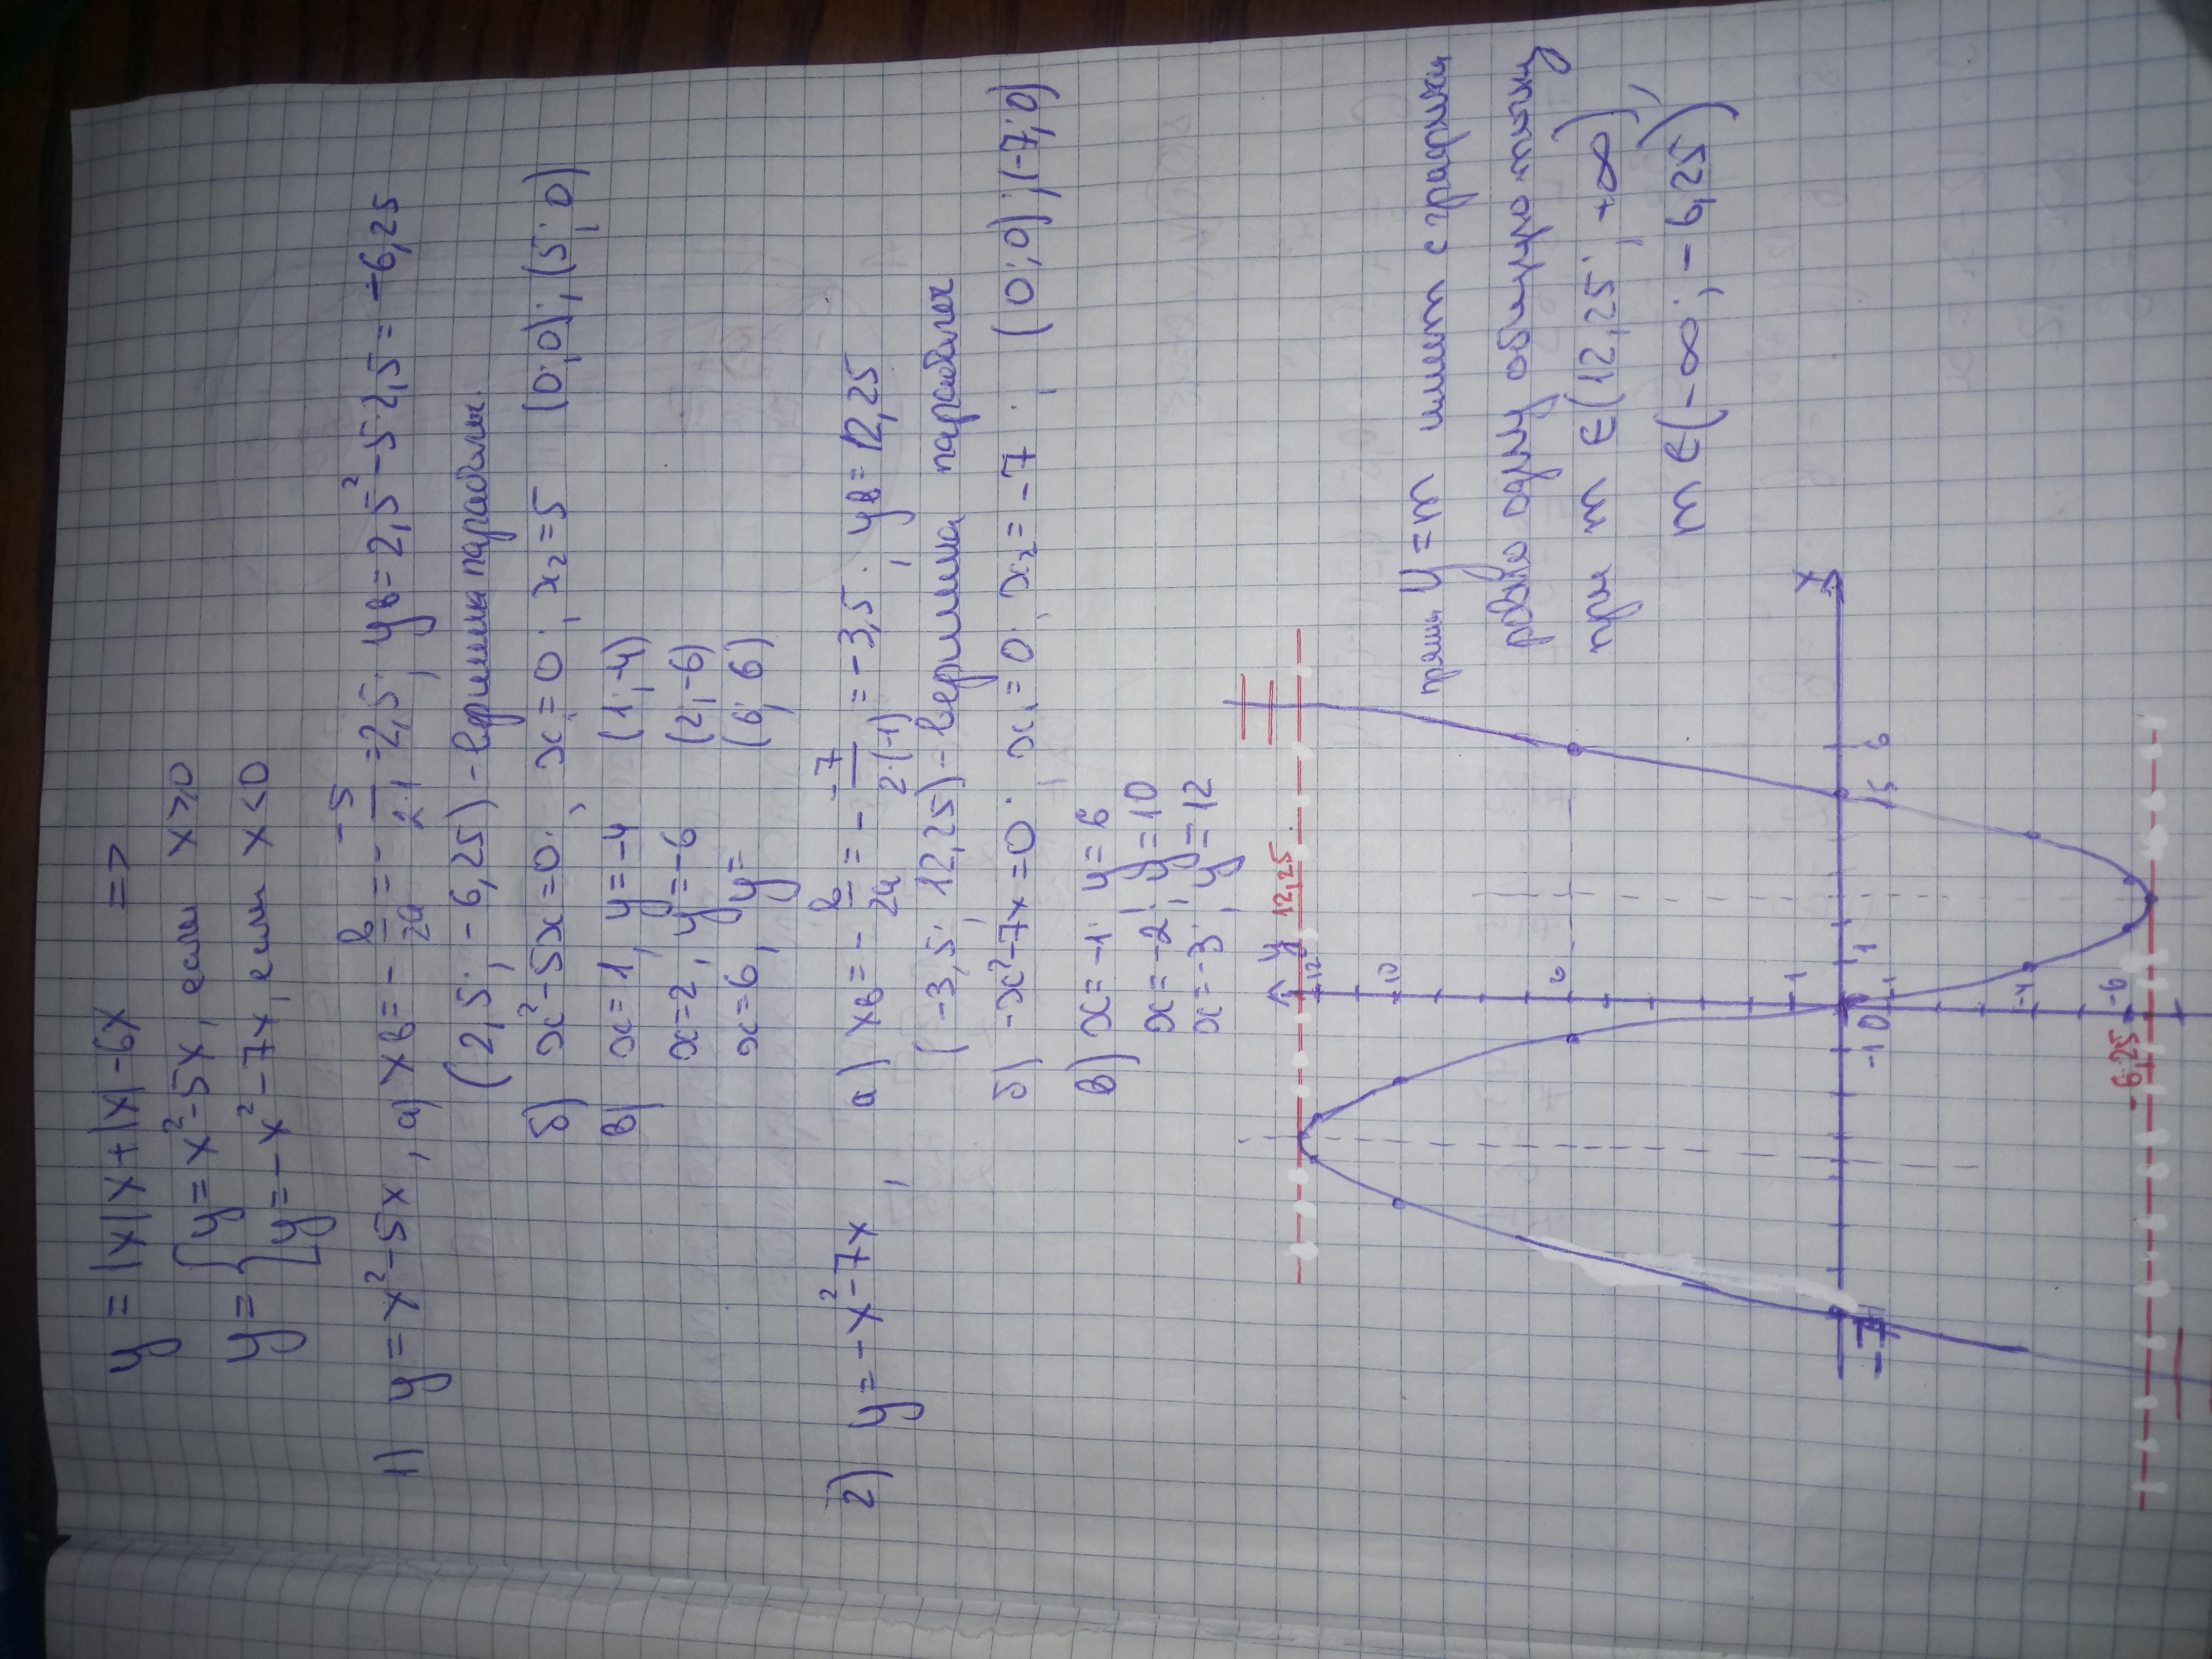 y = |x|x+|x|-6x =>
y = { y = x²-5x, если x≥0
y = -x²-7x, если x<0
1) y = x²-5x, а) xв = - b/2a = - -5/2·1 = 2,5; yв = 2,5²-5·2,5 = -6,25
(2,5; -6,25) - вершина параболы.
б) x²-5x=0; x₁=0; x₂=5 (0;0); (5;0)
в) x=1, y=-4 (1;-4)
x=2, y=-6 (2;-6)
x=6, y= (6; 6)
2) y = -x²-7x, а) xв = - b/2a = - -7/2·(-1) = -3,5; yв = 12,25
(-3,5; 12,25) - вершина параболы
б) -x²-7x=0; x₁=0; x₂=-7; (0;0); (-7;0)
в) x=-1; y=6
x=-2; y=10
x=-3; y=12
y 12,25
12
10
6
1
-7
-1 0
1
5
6
x
-1
-4
-6
-6,25
прям y=m имеет с графиком
ровно одну общую точку
при m ∈ (12,25; +∞),
m ∈ (-∞; -6,25)